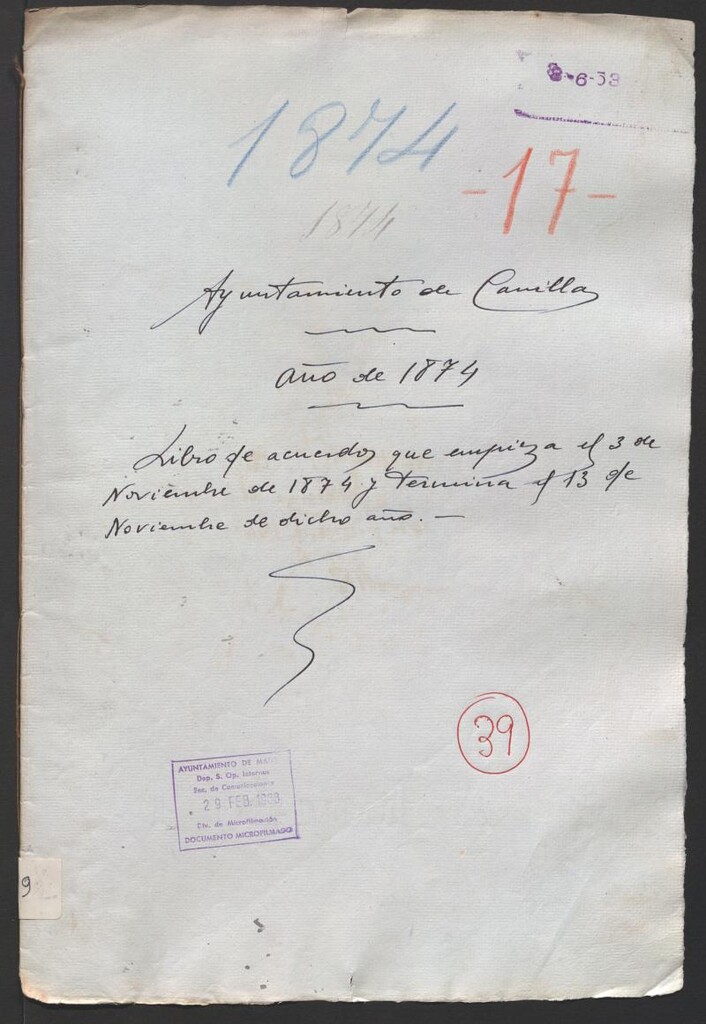 6-38
1874
-17-
1874
Ayuntamiento de Canillas
Año de 1874
Libro de acuerdos que empieza el 3 de
Noviembre de 1874 y termina el 13 de
Noviembre de dicho año. —
39
AYUNTAMIENTO DE
Dep. S. Op. Internos
Sec. de
29 FEB. 1988
Div. de Microfilmación
DOCUMENTO MICROFILMADO
9